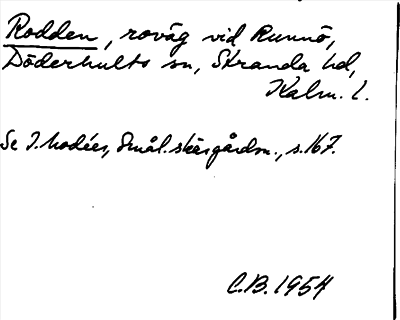 Rodden, roväg vid Runnö,
Döderhults sn, Stranda hd,
Kalm. l.
Se I. Modéer, Smål. skärgårdsn., s. 167.
C.B. 1954